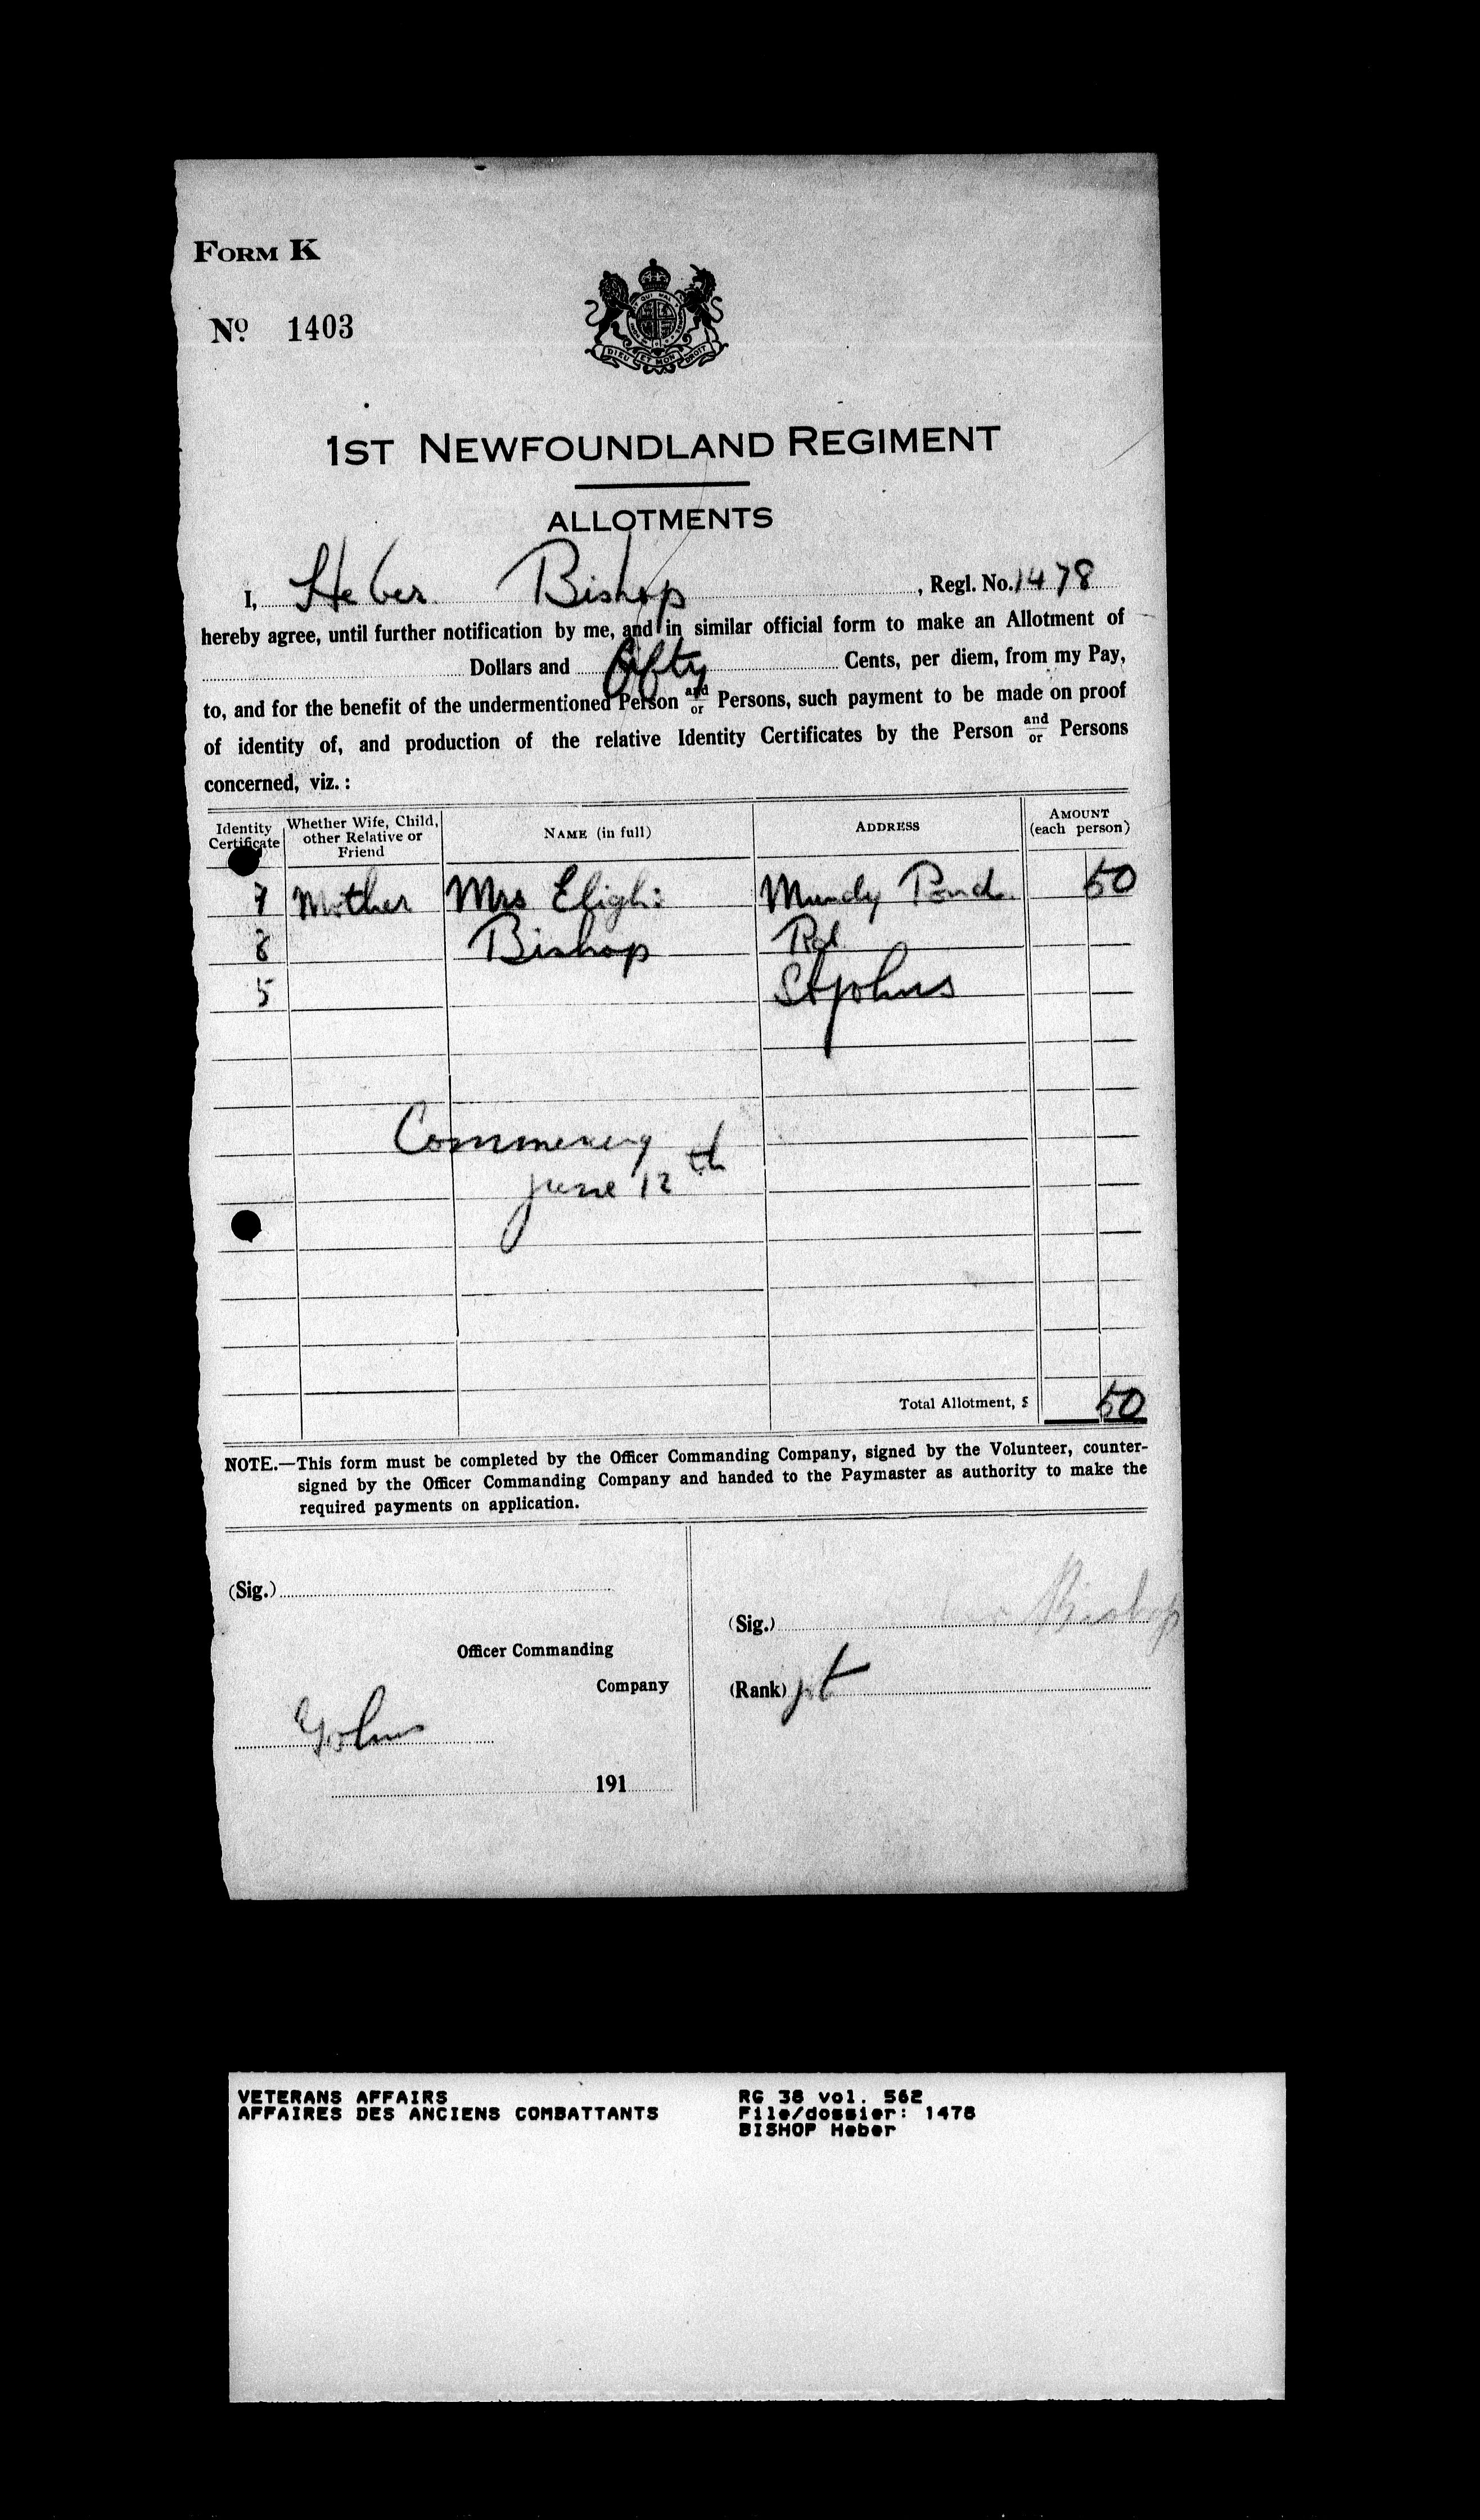 FORM K
No. 1403
DIEU ET MON DROIT
1ST NEWFOUNDLAND REGIMENT
ALLOTMENTS
I, Heber Bishop, Regl. No. 1478
hereby agree, until further notification by me, and in similar official form to make an Allotment of
Dollars and fifty Cents, per diem, from my Pay,
to, and for the benefit of the undermentioned Person and/or Persons, such payment to be made on proof
of identity of, and production of the relative Identity Certificates by the Person and/or Persons
concerned, viz.:
Identity Certificate Whether Wife, Child, other Relative or Friend NAME (in full) ADDRESS AMOUNT (each person)
7 Mother Mrs Mundy Pond 50
8 Bishop Rd
5 St Johns
Commencing
June 12th
Total Allotment, $ 50
NOTE.—This form must be completed by the Officer Commanding Company, signed by the Volunteer, counter-
signed by the Officer Commanding Company and handed to the Paymaster as authority to make the
required payments on application.
(Sig.)
(Sig.) Bishop
Officer Commanding
Company
(Rank) pt
191
VETERANS AFFAIRS RG 38 vol. 562
AFFAIRES DES ANCIENS COMBATTANTS File/dossier: 1478
BISHOP Heber